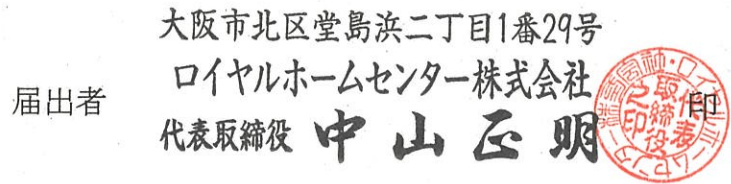 大阪市北区堂島浜二丁目1番29号
ロイヤルホームセンター株式会社
届出者
代表取締役 中山正明
印
代表
取締役
之印